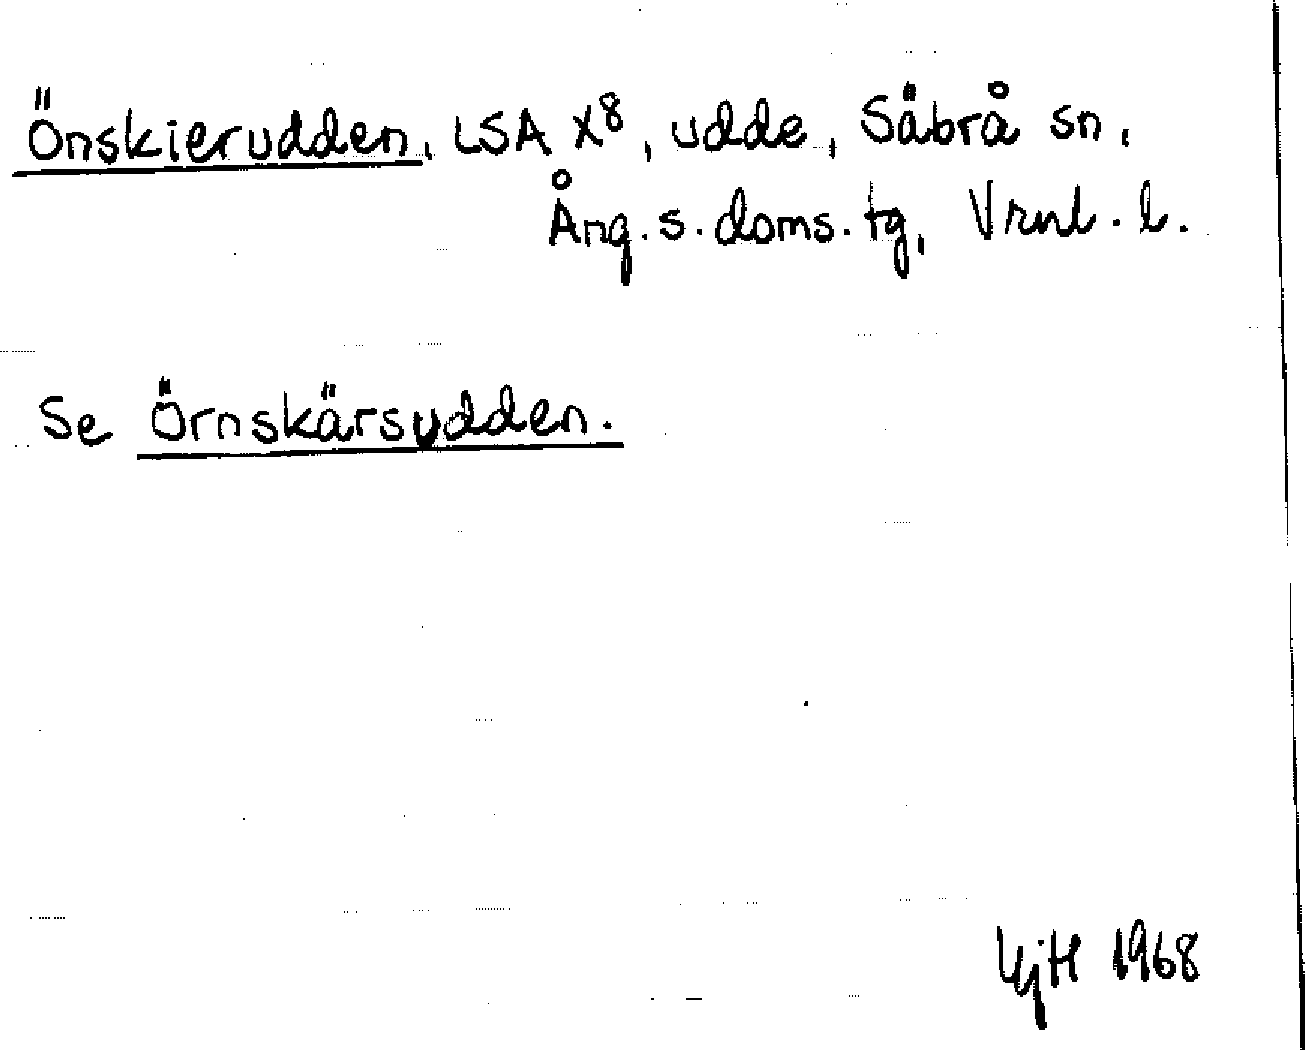 Önskierudden, LSA X⁸, udde, Säbrå sn,
Ång. s. doms. tg, Vrnl. l.
Se Örnskärsudden.
1968